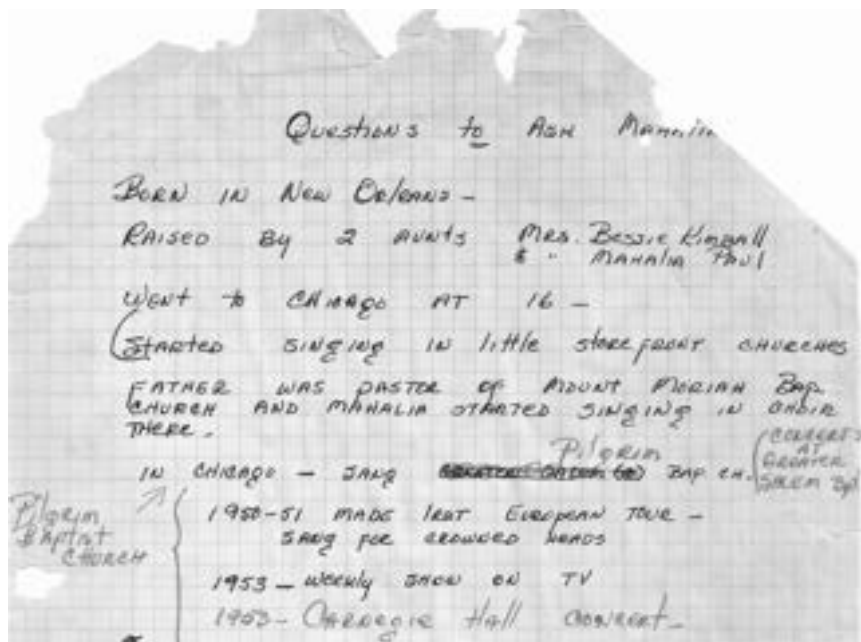 Questions to Ask
Born in New Orleans -
Raised By 2 Aunts Mrs. Bessie Kimball
& " Mahalia Paul
Went to Chicago at 16 -
Started singing in little store front churches
Father was pastor of Mount Moriah Bap.
Church and Mahalia started singing in choir
there.
Pilgrim
in Chicago - sang Bap ch.
(Concerts
at
Greater
Salem Bpt
Pilgrim
Baptist
Church
1950-51 made 1rst European Tour -
sang for crowned heads
1953 - weekly show on TV
Carnegie Hall Concert -